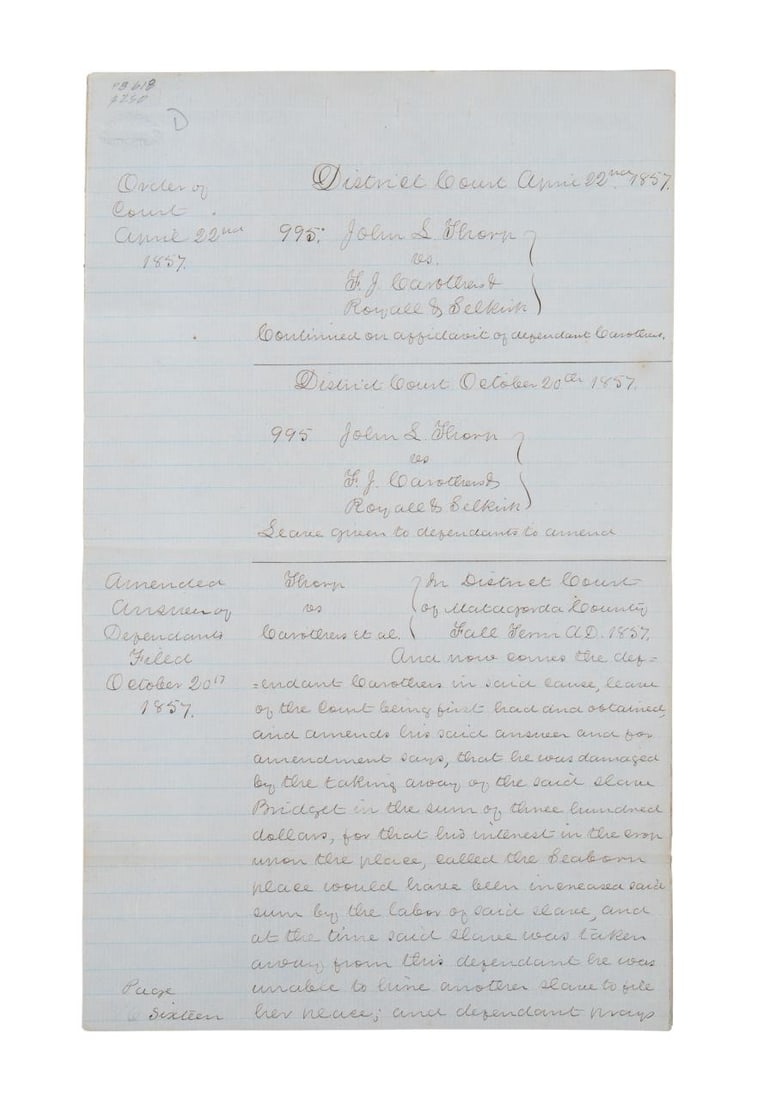 PB 618
D
Order of
Court
April 22nd
1857.
District Court April 22nd 1857.
995. John L. Thorp
vs.
F. J. Carothers &
Royall & Selkirk
Continued on affidavit of defendant Carothers.
District Court October 20th 1857.
995 John L. Thorp
vs
F. J. Carothers &
Royall & Selkirk
Leave given to defendants to amend
Amended
Answer of
Defendants
Filed
October 20th
1857.
Thorp
vs
Carothers et al.
In District Court
of Matagorda County
Fall Term A.D. 1857.
And now comes the def=
=endant Carothers in said cause, leave
of the Court being first had and obtained,
and amends his said answer and for
amendment says, that he was damaged
by the taking away of the said slave
Bridget in the sum of three hundred
dollars, for that his interest in the crop
upon the place, called the Seaborn
place would have been increased said
sum by the labor of said slave, and
at the time said slave was taken
away from this defendant he was
unable to hire another slave to file
her place; and defendant prays
Page
Sixteen